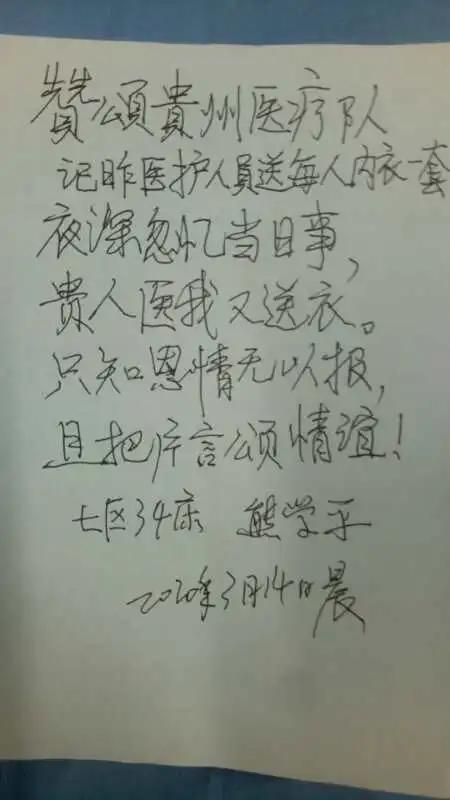 赞頌貴州医疗队
记昨医护人員送每人内衣一套
夜深忽忆当日事，
贵人医我又送衣。
只知恩情无以报，
且把片言颂情谊！
七区34床 熊学平
2020年3月14日晨